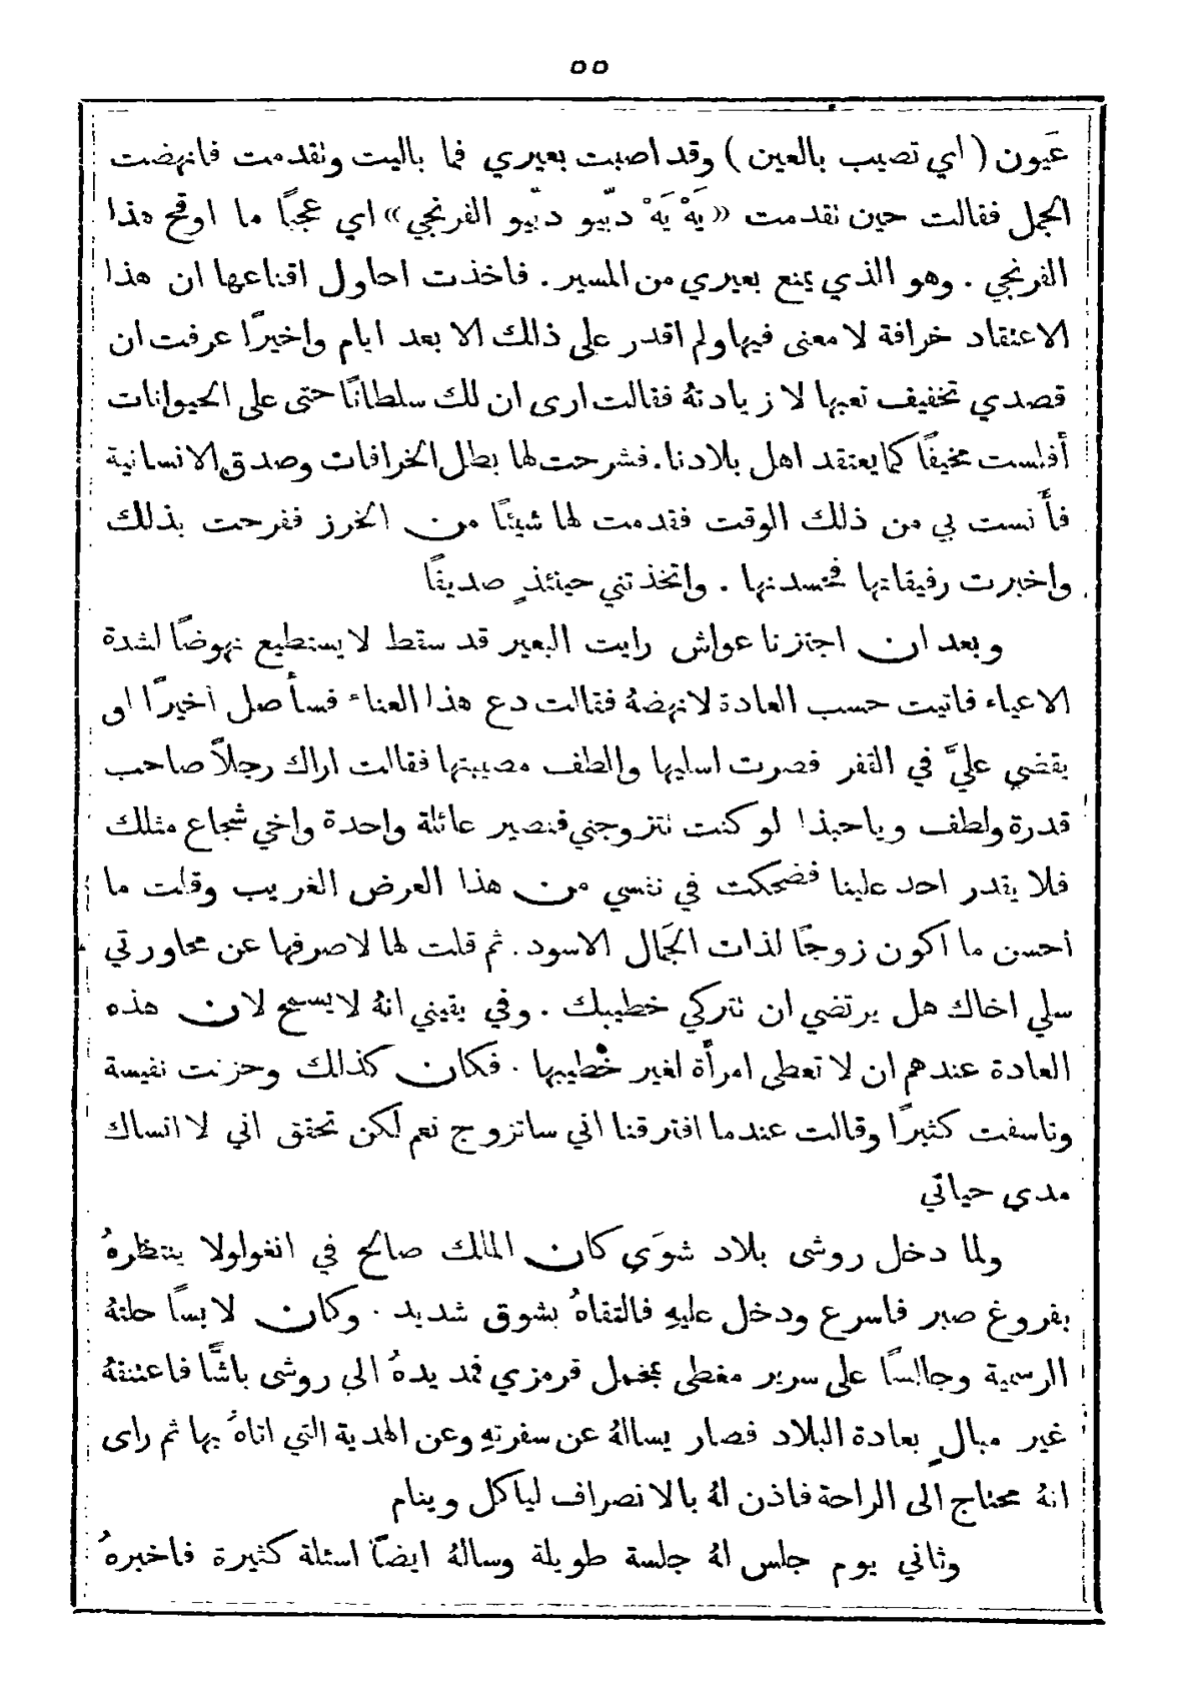 ٥٥
عَيون ( اي تصيب بالعين ) وقد اصبت بعيري فما باليت وتقدمت فانهضت
الجمل فقالت حين تقدمت «يَهْ يَهْ دبّيو دبّيو الفرنجي» اي عجبًا ما اوقح هذا
الفرنجي . وهو الذي يمنع بعيري من المسير . فاخذت احاول اقناعها ان هذا
الاعتقاد خرافة لا معنى فيها ولم اقدر على ذلك الا بعد ايام واخيرًا عرفت ان
قصدي تخفيف تعبها لا زيادتهُ فقالت ارى ان لك سلطانًا حتى على الحيوانات
أفلست مخيفًا كما يعتقد اهل بلادنا . فشرحت لها بطل الخرافات وصدق الانسانية
فأَنست بي من ذلك الوقت فقدمت لها شيئًا من الخرز ففرحت بذلك
واخبرت رفيقاتها فحسدنها . واتخذتني حينئذٍ صديقًا
وبعد ان اجتزنا عواش رايت البعير قد سقط لا يستطيع نهوضًا لشدة
الاعياء فاتيت حسب العادة لانهضهُ فقالت دع هذا العناء فسأصل اخيرًا او
يقضي عليَّ في القفر فصرت اسليها والطف مصيبتها فقالت اراك رجلاً صاحب
قدرة ولطف ويا حبذا لو كنت تتزوجني فنصير عائلة واحدة واخي شجاع مثلك
فلا يقدر احد علينا فضحكت في نفسي من هذا العرض الغريب وقلت ما
احسن ما اكون زوجًا لذات الجَمال الاسود . ثم قلت لها لاصرفها عن محاورتي
سلي اخاك هل يرتضي ان تتركي خطيبك . وفي يقيني انهُ لا يسمح لان هذه
العادة عندهم ان لا تعطى امرأة لغير خطيبها . فكان كذلك وحزنت نفيسة
وتاسفت كثيرًا وقالت عندما افترقنا اني ساتزوج نعم لكن تحقق اني لا انساك
مدي حياتي
ولما دخل روشى بلاد شوَي كان الملك صالح في انغولولا ينتظرهُ
بفروغ صبر فاسرع ودخل عليهِ فالتقاهُ بشوق شديد . وكان لابسًا حلتهُ
الرسمية وجالسًا على سرير مغطى بمخمل قرمزي فمد يدهُ الى روشى باشًّا فاعتنقهُ
غير مبالٍ بعادة البلاد فصار يسالهُ عن سفرتهِ وعن الهدية التي اتاهُ بها ثم راى
انهُ محتاج الى الراحة فاذن لهُ بالانصراف لياكل وينام
وثاني يوم جلس لهُ جلسة طويلة وسالهُ ايضًا اسئلة كثيرة فاخبرهُ